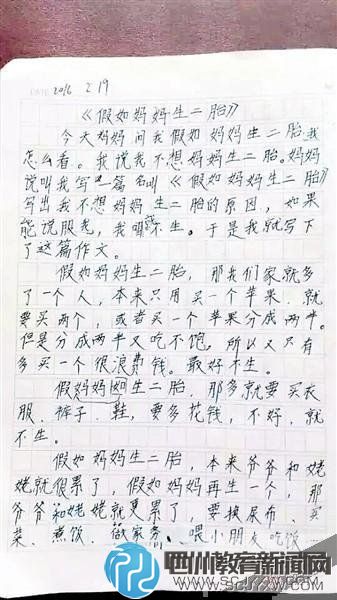 DATE 2016 2 19
《假如妈妈生二胎》
今天妈妈问我假如妈妈生二胎我
怎么看。我说我不想妈妈生二胎。妈妈
说叫我写一篇名叫《假如妈妈生二胎》
写出我不想妈妈生二胎的原因，如果
能说服我，我就不生。于是我就写下
了这篇作文。
假如妈妈生二胎，那我们家就多
了一个人，本来只用买一个苹果，就
要买两个，或者买一个苹果分成两半。
但是分成两半又吃不饱，所以又只有
多买一个很浪费钱。最好不生。
假妈妈如生二胎，那多就要买衣
服、裤子、鞋，要多花钱，不好，就
不生。
假如妈妈生二胎，本来爷爷和姥
姥就很累了，假如妈妈再生一个，那
爷爷和姥姥就更累了，要换尿布、买
菜、煮饭、做家务、喂小朋友吃饭
四川教育新闻网
WWW.SCJYXW.COM